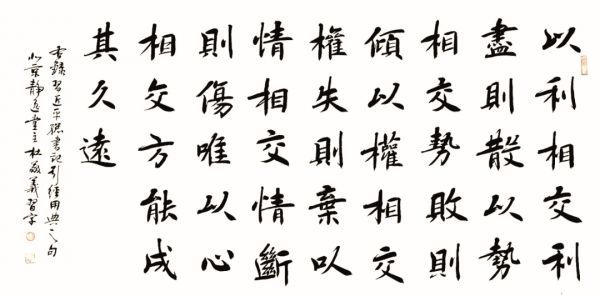 以利相交利
盡則散以勢
相交勢敗則
傾以權相交
權失則棄以
情相交情斷
則傷唯以心
相交方能成
其久遠
書錄習近平總書記引經用典之句
北京靜堂主杜義習字